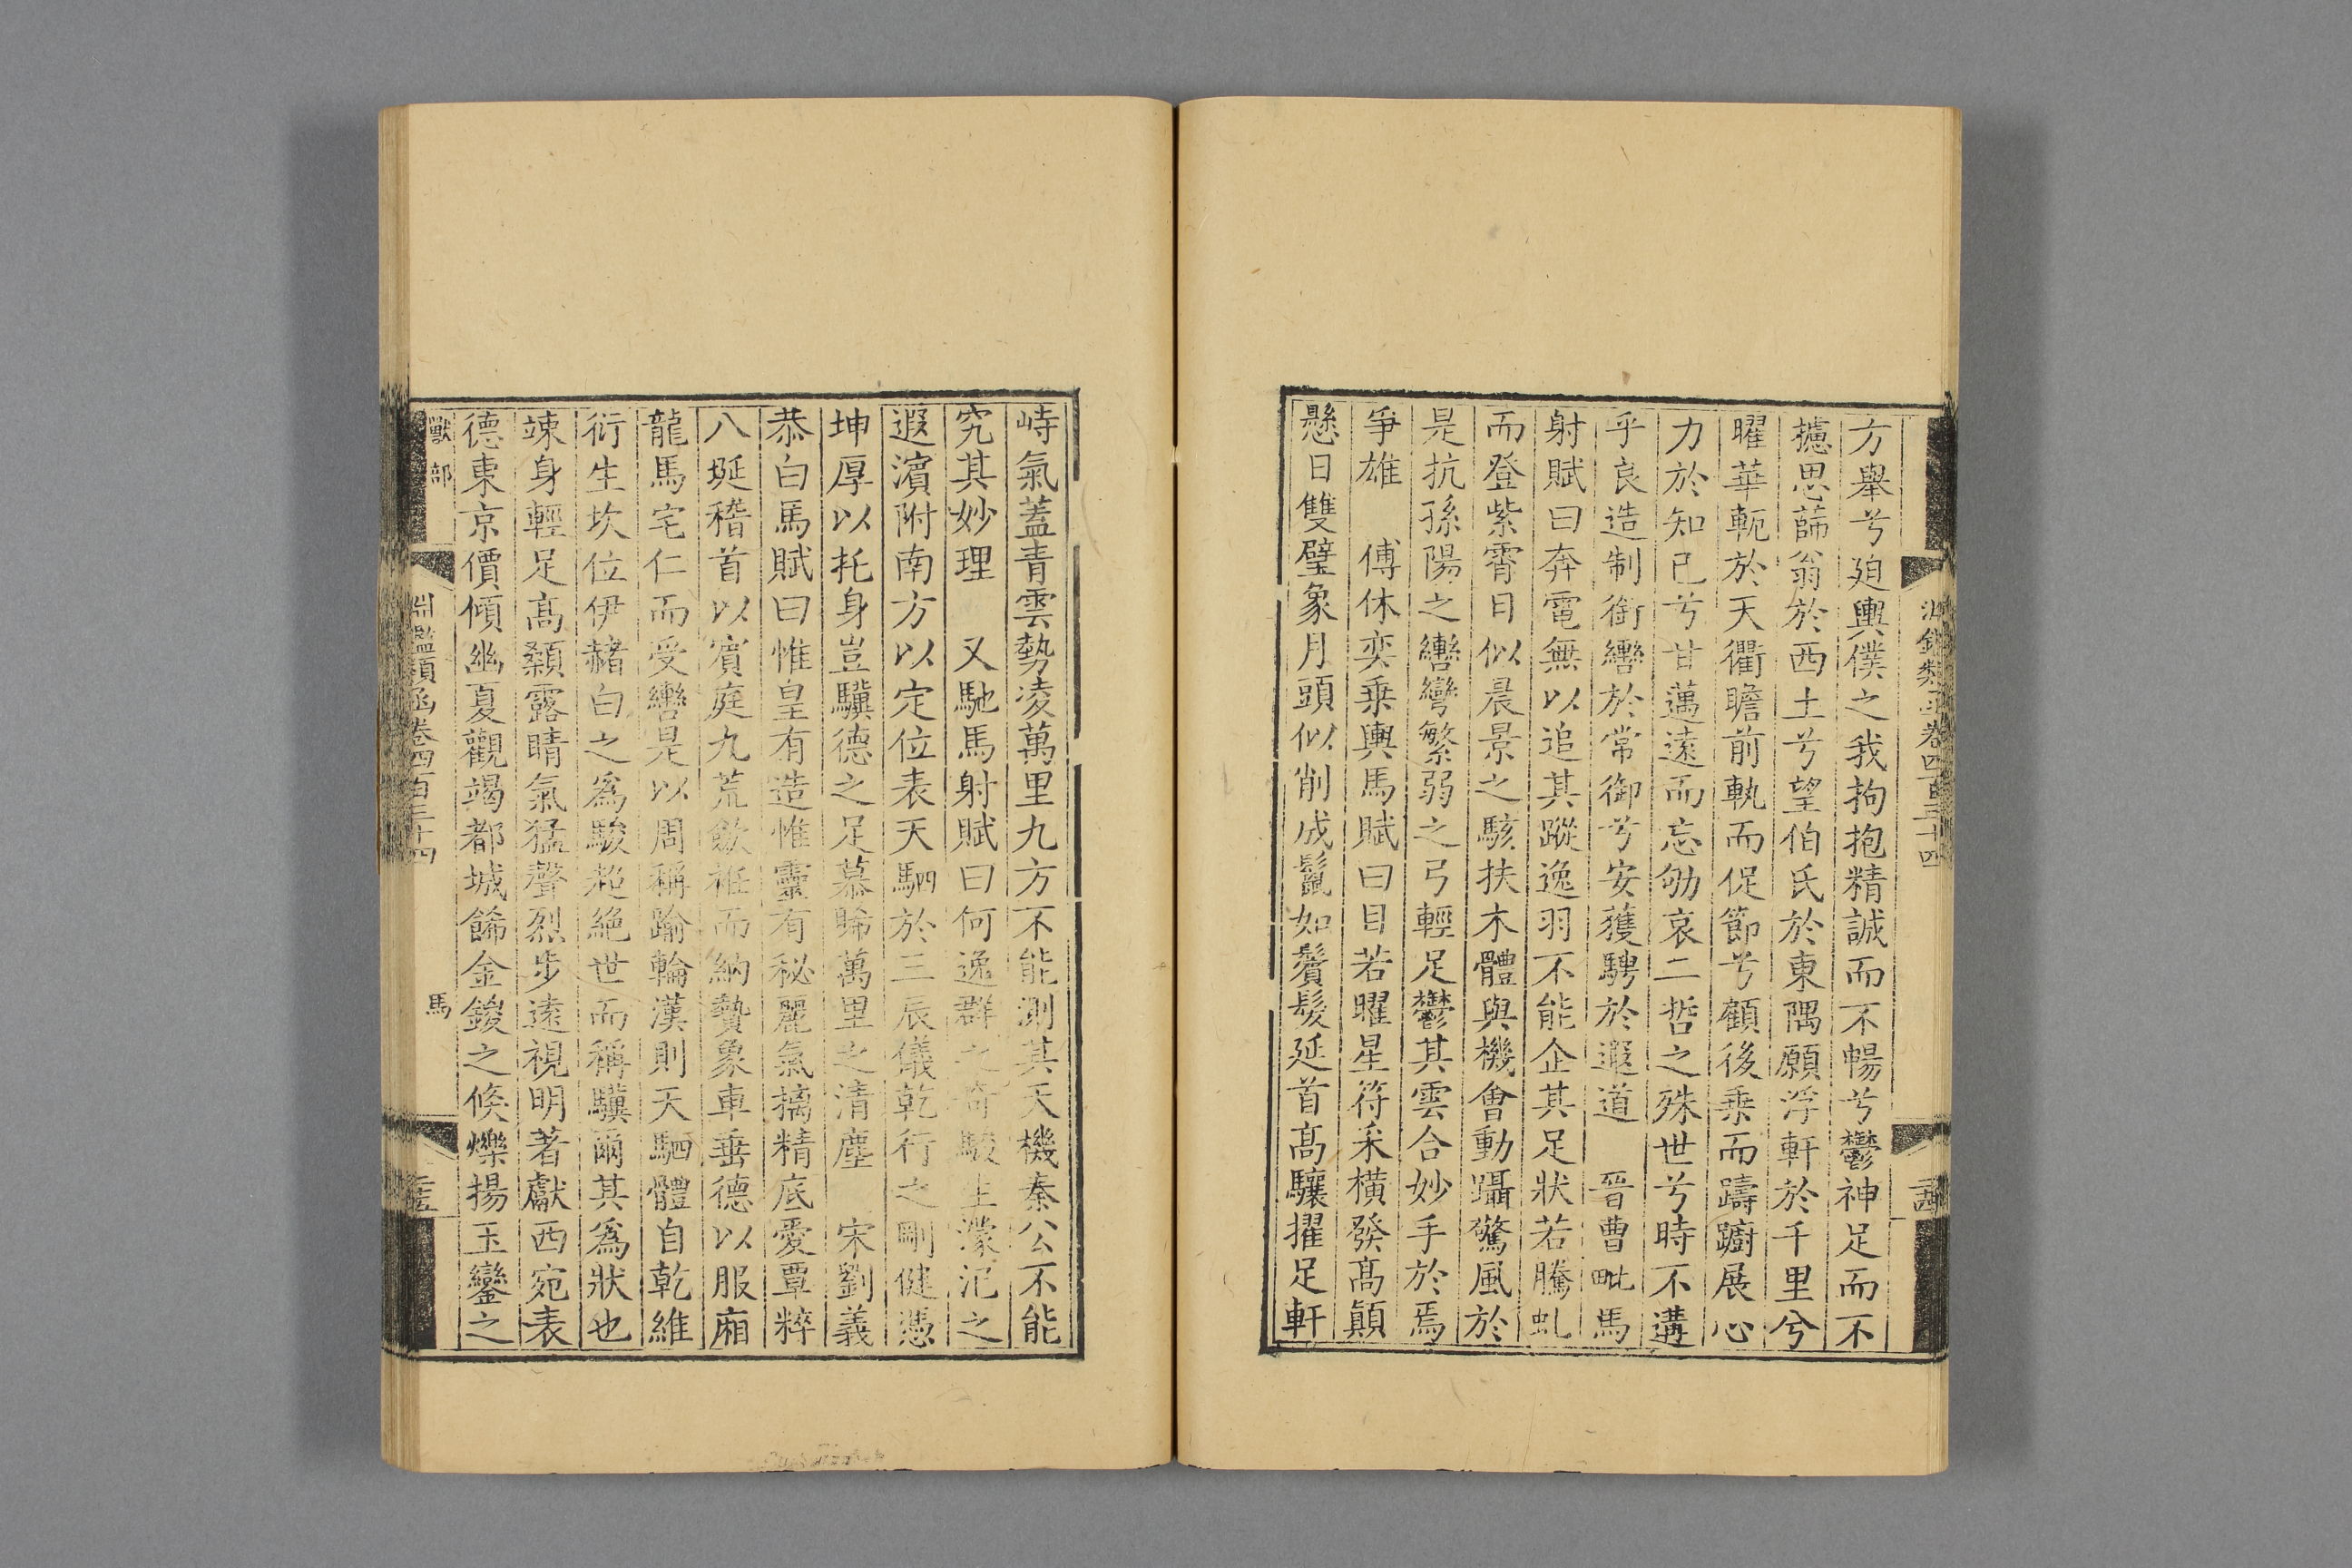 方舉兮迫輿僕之我拘抱精誠而不暢兮鬱神足而不
攄思薛翁於西土兮望伯氏於東隅願浮軒於千里兮
曜華軛於天衢瞻前軌而促節兮顧後乘而躊躕展心
力於知己兮甘邁遠而忘劬哀二哲之殊世兮時不遘
乎良造制銜轡於常御兮安獲騁於遐道 晉曹毗馬
射賦曰奔電無以追其蹤逸羽不能企其足狀若騰虬
而登紫霄目似晨景之駭扶木體與機會動躡驚風於
是抗孫陽之轡彎繁弱之弓輕足鬱其雲合妙手於焉
爭雄 傅休奕乗輿馬賦曰目若曜星符采橫發髙顛
懸日雙璧象月頭似削成鬣如鬒髮延首髙驤擢足軒
峙氣蓋青雲勢凌萬里九方不能測其天機秦公不能
究其妙理 又馳馬射賦曰何逸群之竒駿生濛汜之
遐濵附南方以定位表天駟於三辰儀乾行之剛健憑
坤厚以托身豈驥德之足慕睎萬里之清塵 宋劉義
恭白馬賦曰惟皇有造惟靈有秘麗氣摛精底愛覃粹
八埏稽首以賔庭九荒歛袵而納贄象車垂德以服廂
龍馬宅仁而受轡是以周稱踰輪漢則天駟體自乾維
衍生坎位伊赭白之爲駿超絶世而稱驥爾其爲狀也
竦身輕足髙顙露睛氣猛聲烈步遠視明著獻西宛表
德東京價傾幽夏觀竭都城餙金鍐之倐爍揚玉鑾之
獸部 淵鑑類函卷四百三十四 馬